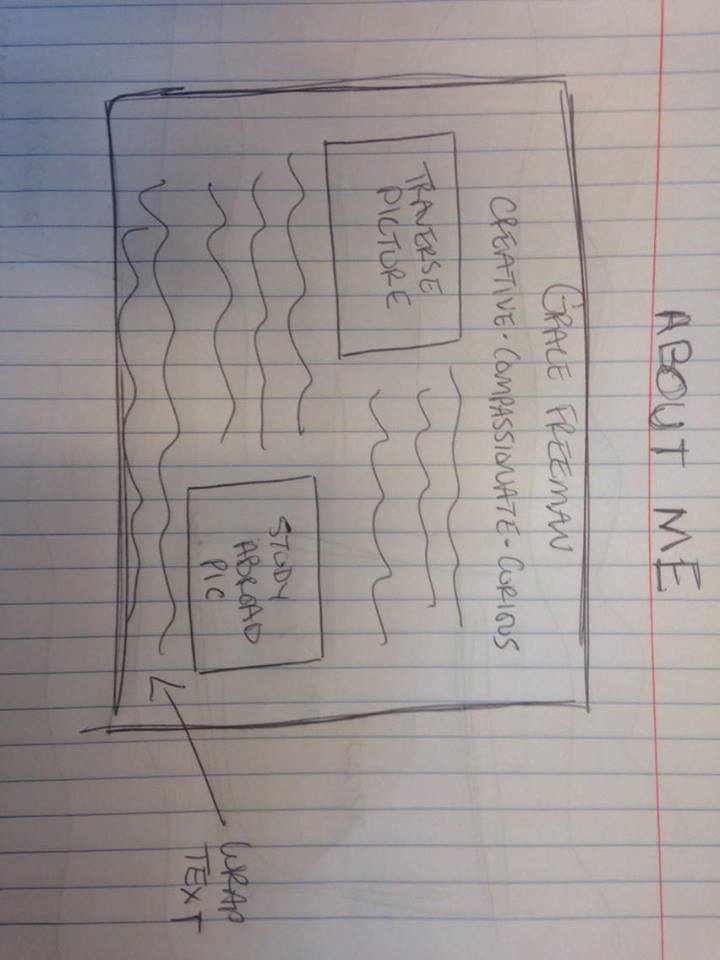 ABOUT ME
GRACE FREEMAN
CREATIVE - COMPASSIONATE - CURIOUS
TRAVERSE
PICTURE
STUDY
ABROAD
PIC
WRAP
TEXT